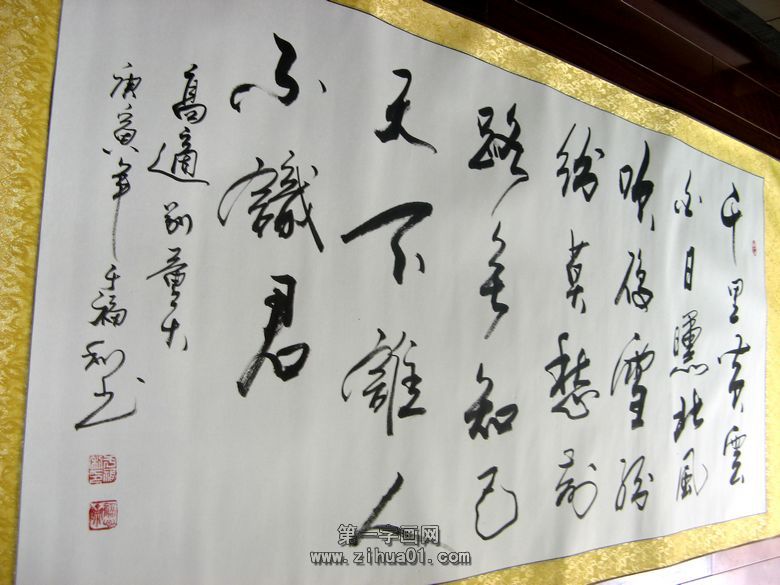 千里黄雲
白日曛北風
吹雁雪紛
紛莫愁前
路無知己
天下誰人
不識君
高適別董大
庚寅年王福利書
第一字画网
www.zihua01.com